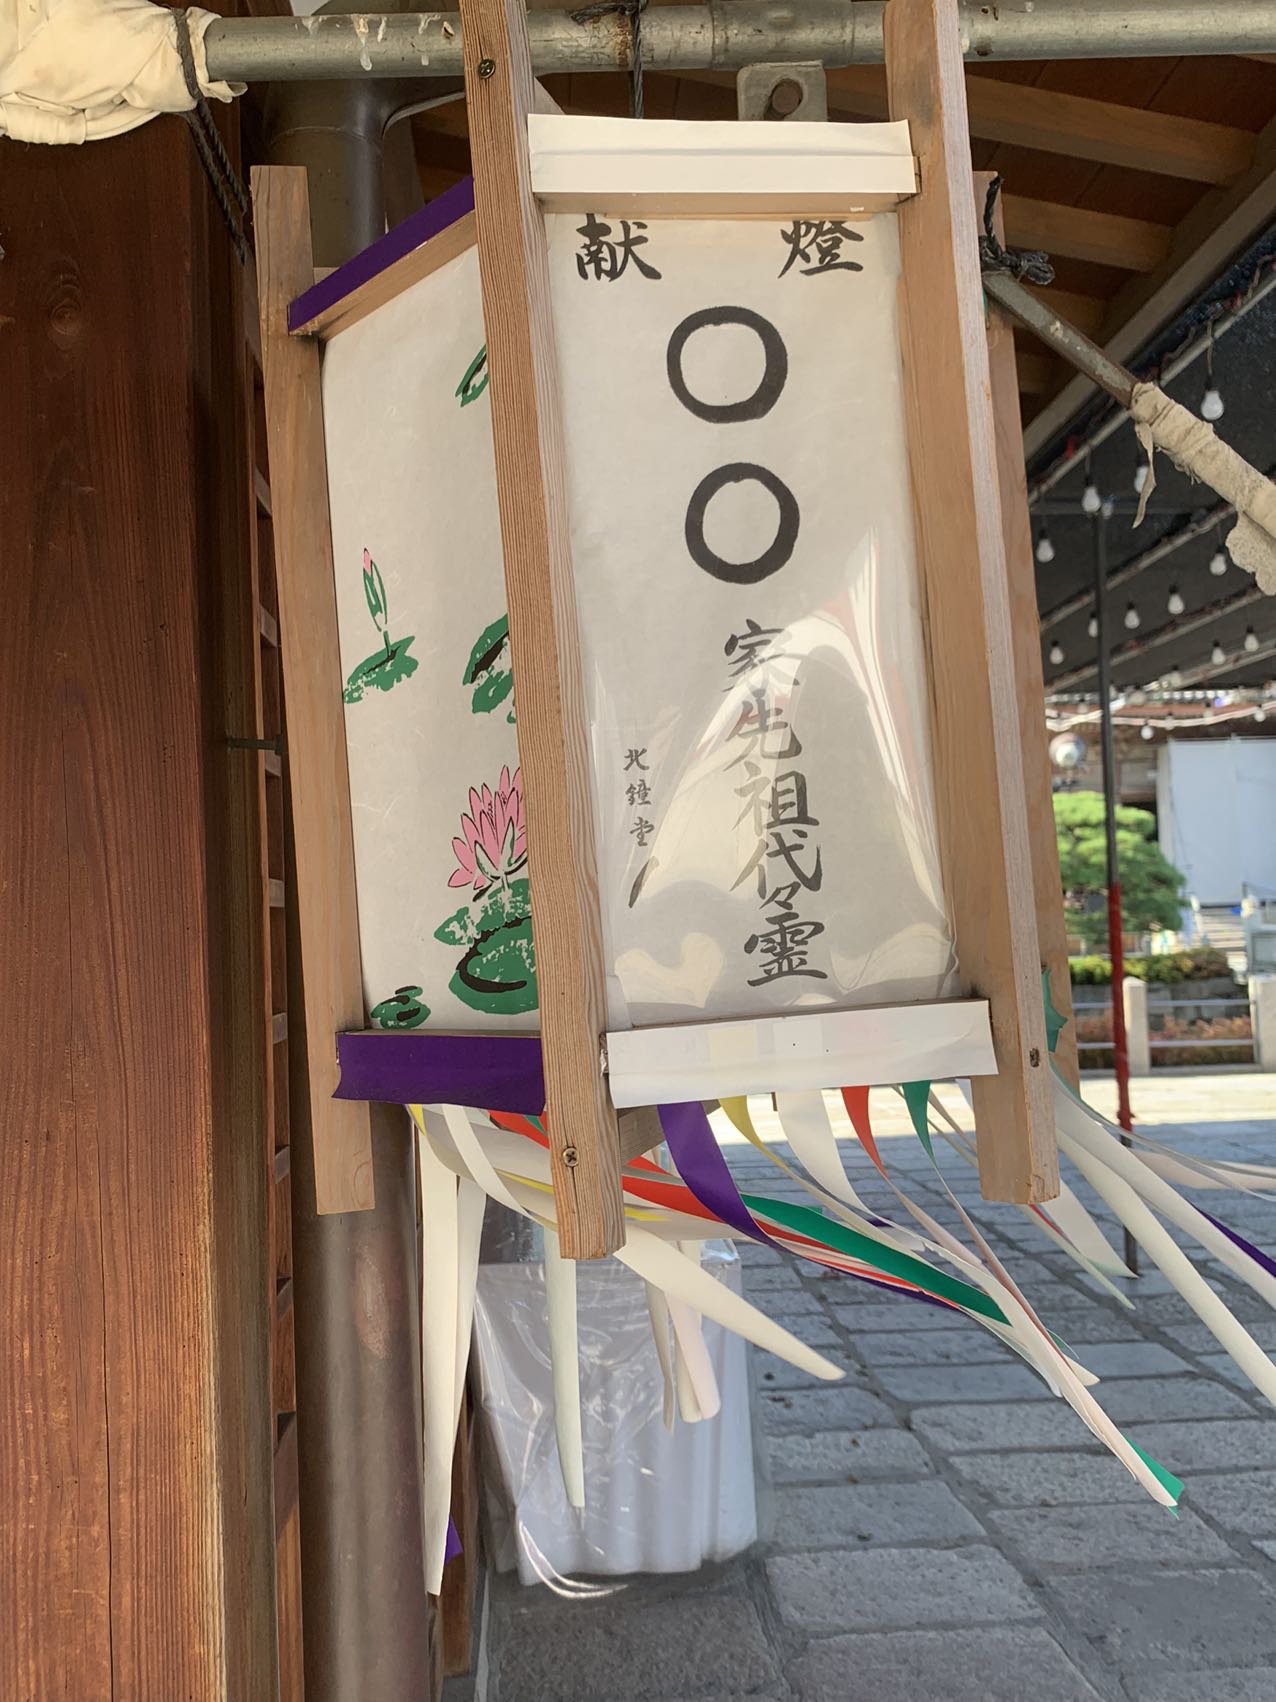 献燈
〇〇家先祖代々霊
北鐘堂